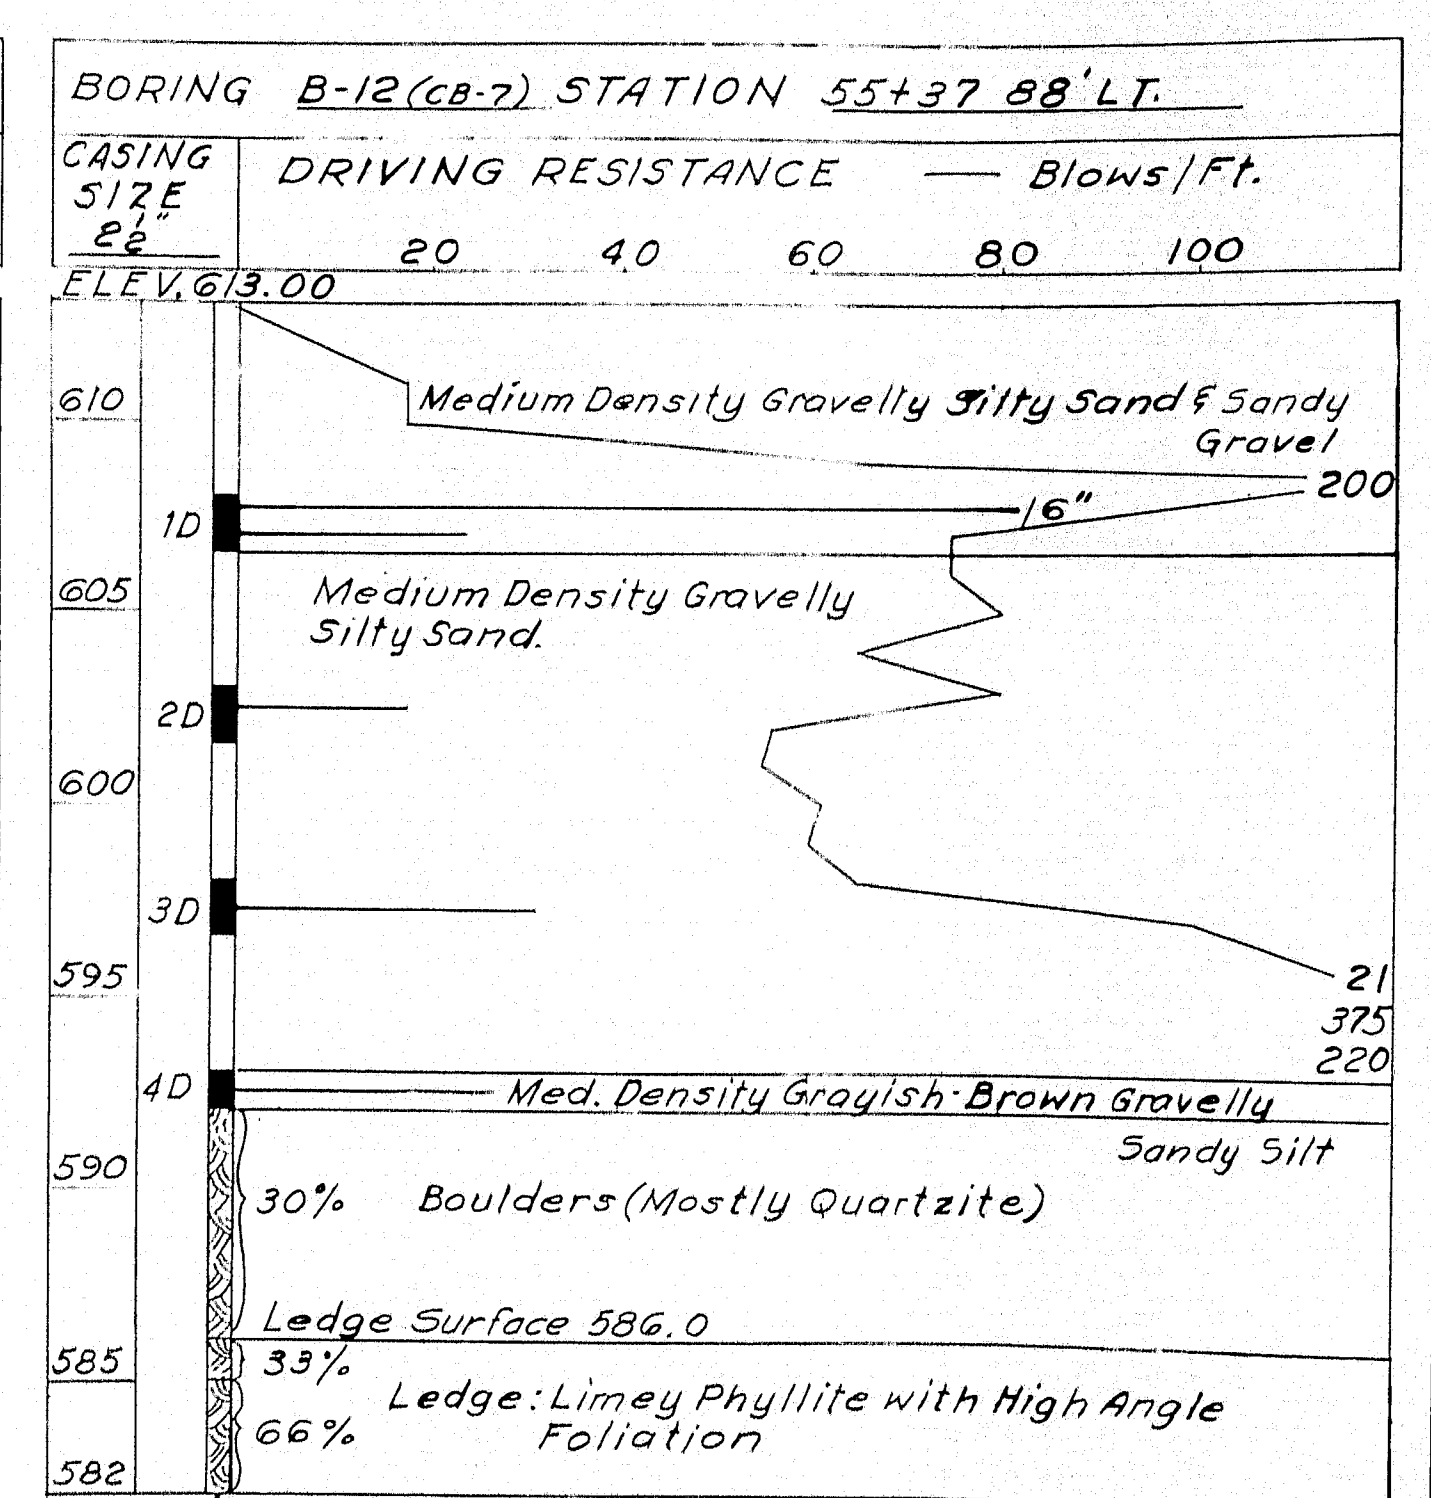 BORING B-12(CB-7) STATION 55+37 88' LT.
CASING
SIZE
2½"
DRIVING RESISTANCE — Blows/Ft.
20 40 60 80 100
ELEV. 613.00
610
Medium Density Gravelly Silty Sand & Sandy
Gravel
200
1D
/6"
605
Medium Density Gravelly
Silty Sand.
2D
600
3D
595
21
375
220
4D
Med. Density Grayish-Brown Gravelly
Sandy Silt
590
30% Boulders (Mostly Quartzite)
Ledge Surface 586.0
585
33%
Ledge: Limey Phyllite with High Angle
Foliation
66%
582